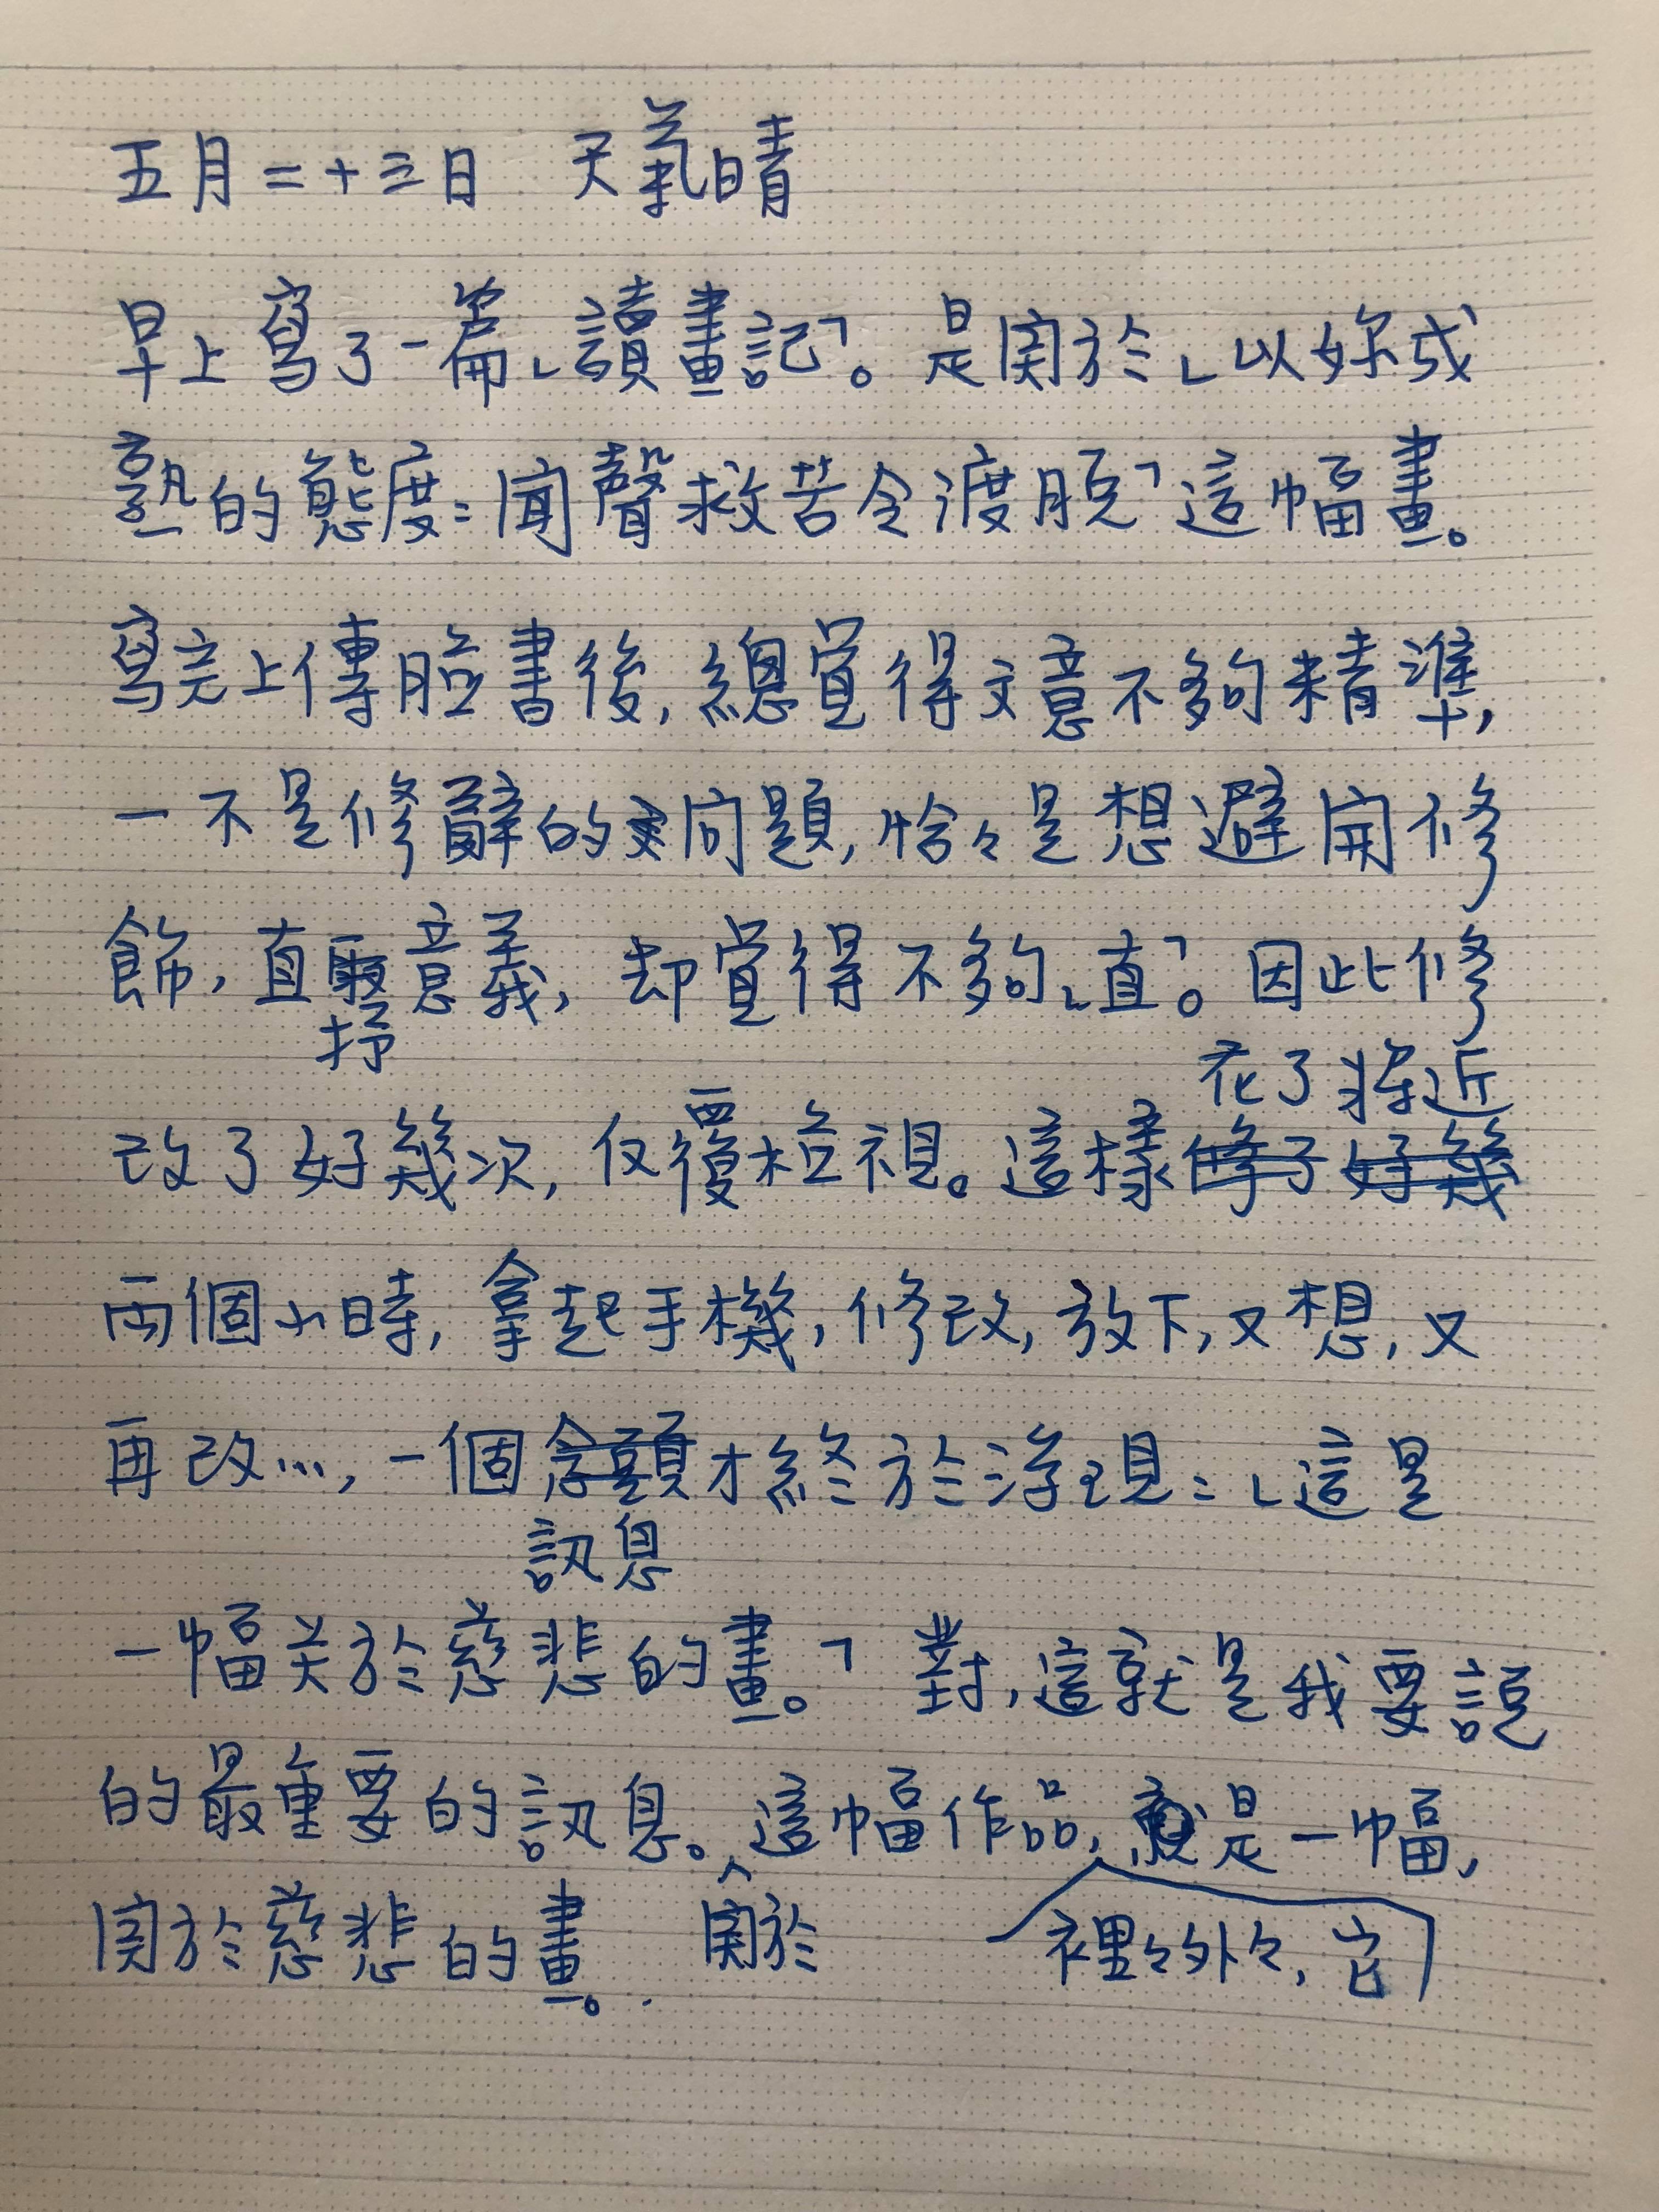 五月二十三日　天氣晴
早上寫了一篇「讀畫記」。是關於「以妳成
熟的態度：聞聲救苦令渡脫」這幅畫。
寫完上傳臉書後，總覺得文意不夠精準，
一不是修辭的問題，恰々是想避開修
飾，直取意義，却覺得不夠「直」。因此修
抒
花了將近
改了好幾次，反覆檢視。這樣修了好幾
兩個小時，拿起手機，修改，放下，又想，又
再改…，一個念頭才終於浮現：「這是
訊息
一幅关於慈悲的畫。」對，這就是我要說
的最重要的訊息。這幅作品，就是一幅，
関於慈悲的畫。 関於 裡々外々，它